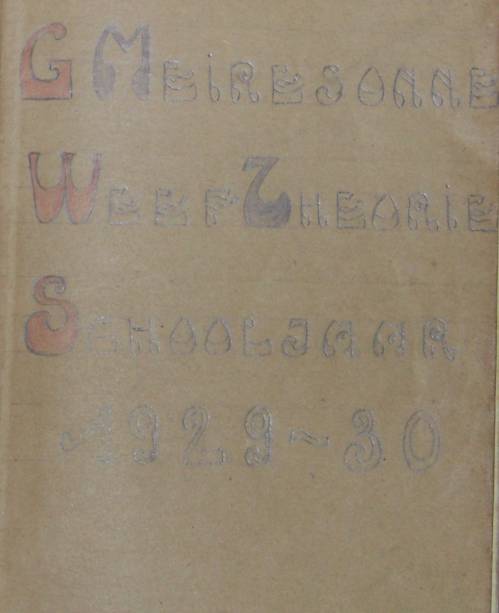 G MEiRESONNE
WEEFTHEORiE
SCHOOLJAAR
1929-30